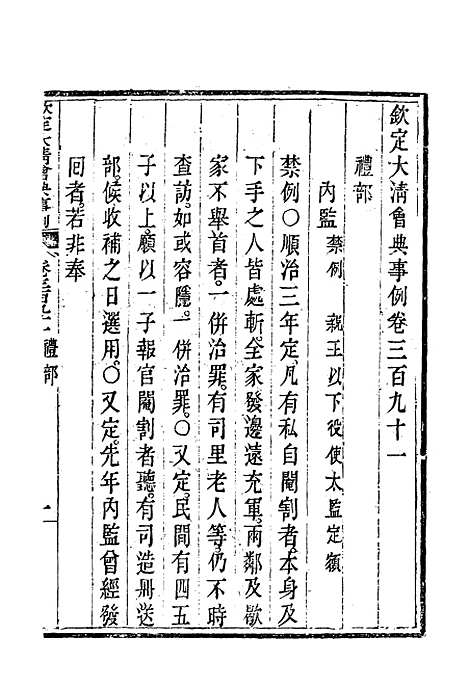 欽定大清會典事例卷三百九十一
禮部
內監 禁例 親王以下役使太監定額
禁例〇順治三年定凡有私自閹割者本身及
下手之人皆處斬全家發邊遠充軍兩鄰及歇
家不舉首者一併治罪有司里老人等仍不時
查訪如或容隱一併治罪〇又定民間有四五
子以上願以一子報官閹割者聽有司造冊送
部候收補之日選用〇又定先年內監曾經發
回者若非奉
欽定大清會典事例 卷三百九十一 禮部 一